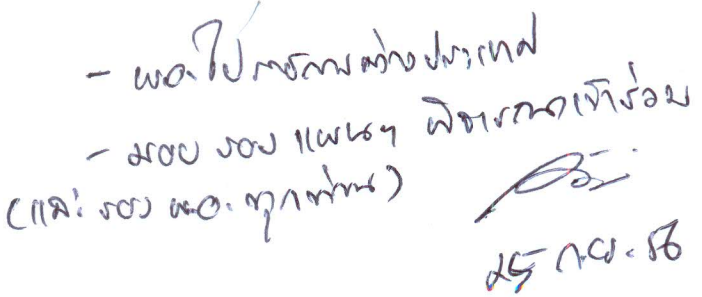 - ผอ. ไปราชการต่างประเทศ
- มอบ รอง แผนฯ พิจารณาเข้าร่วม
(และ รอง ผอ. ทุกท่าน)
25 ก.ย. 56